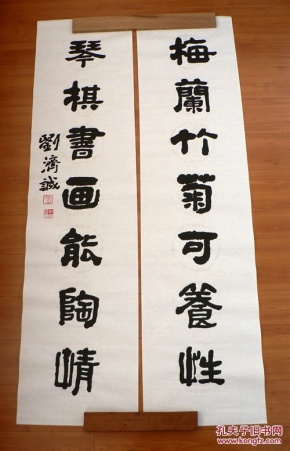 梅蘭竹菊可養性
琴棋書画能陶情
劉濟誠
孔夫子旧书网